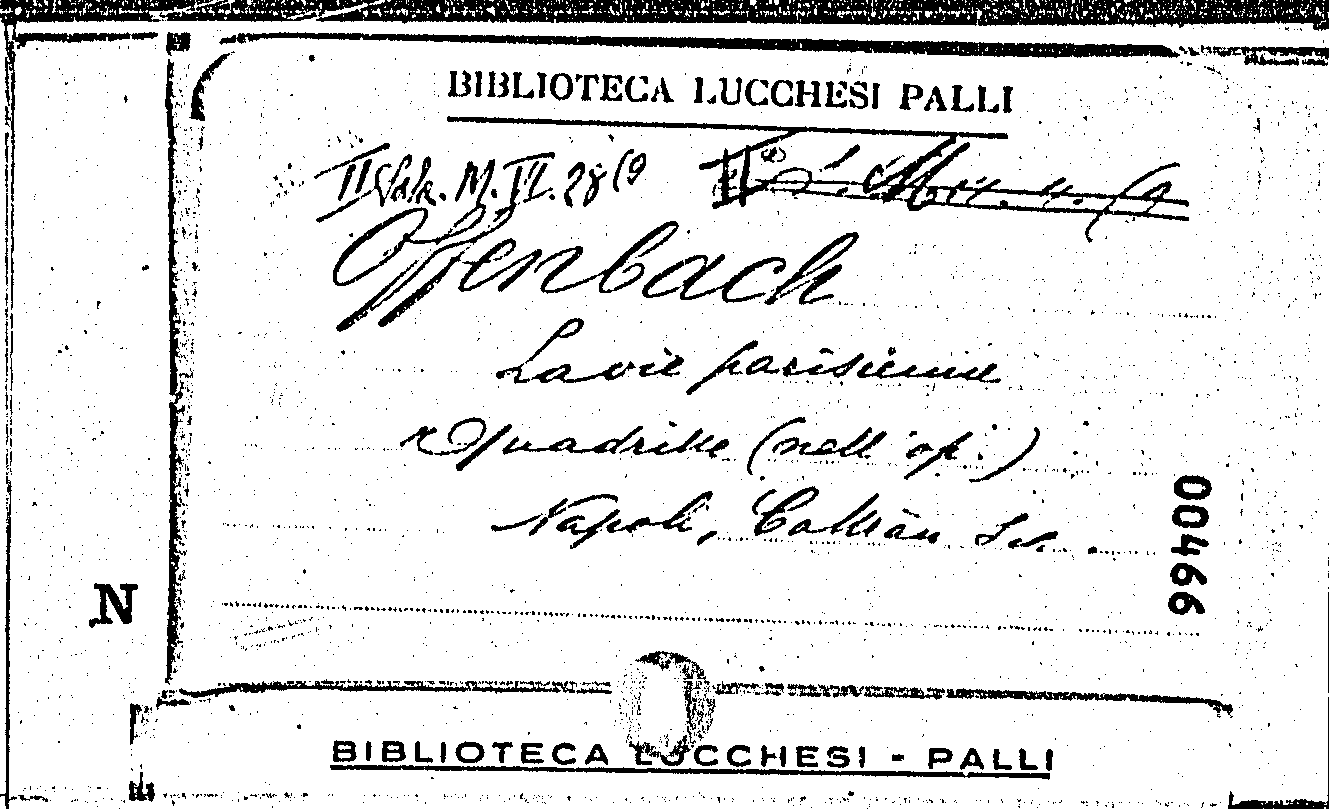 BIBLIOTECA LUCCHESI PALLI
II Sala. M. VI. 28(9
Offenbach
La vie parisienne
Quadrille (nell'op.)
Napoli, Cottrau
00466
N
BIBLIOTECA LUCCHESI - PALLI